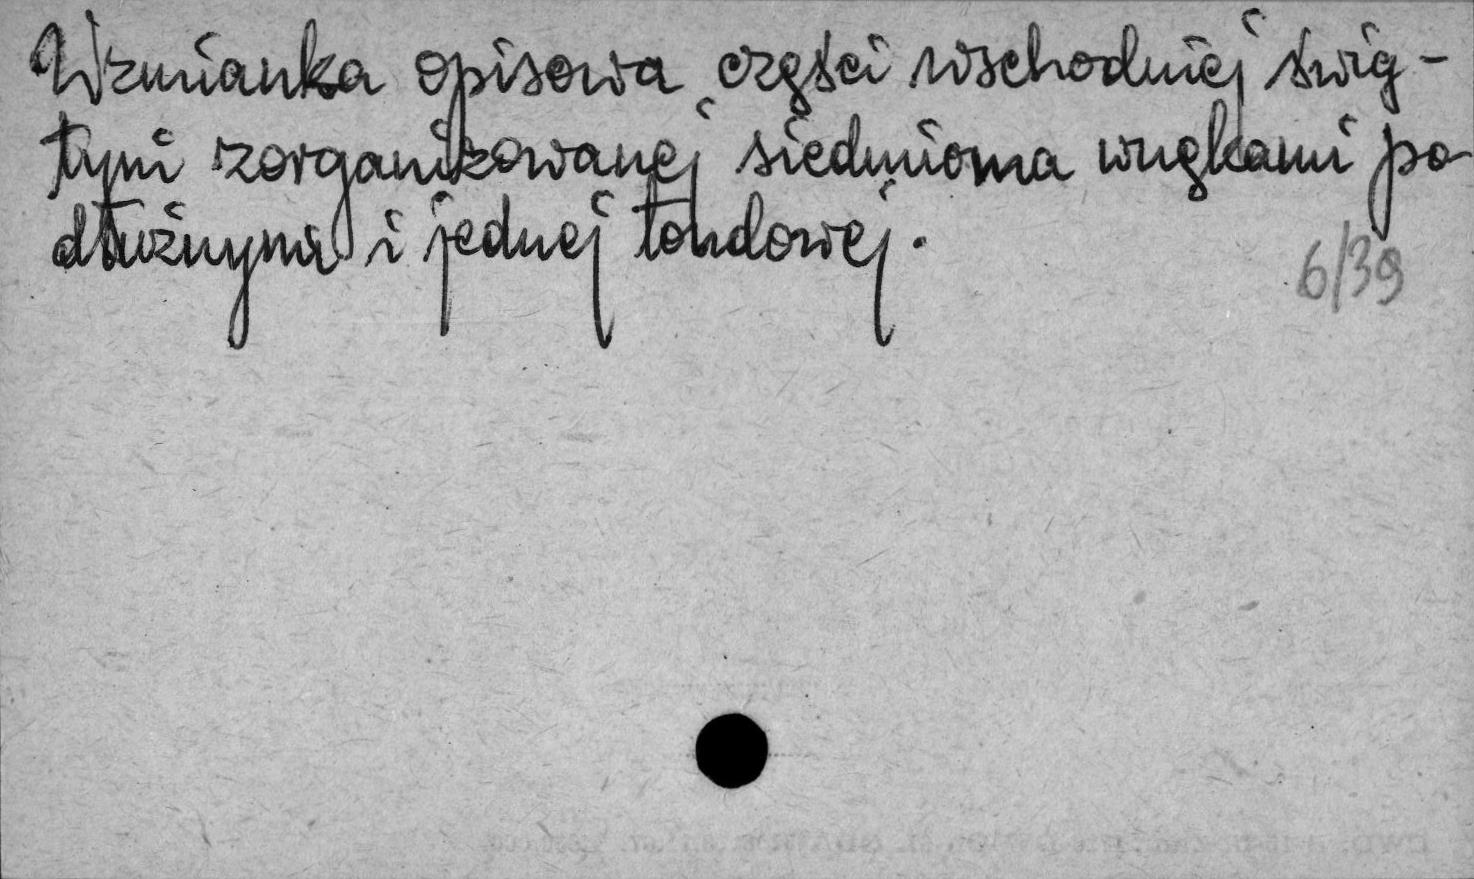 Wzmianka opisowa części wschodniej świą-
tyni zorganizowanej siedmioma wnękami po-
dłużnymi i jednej tondowej.
6/39